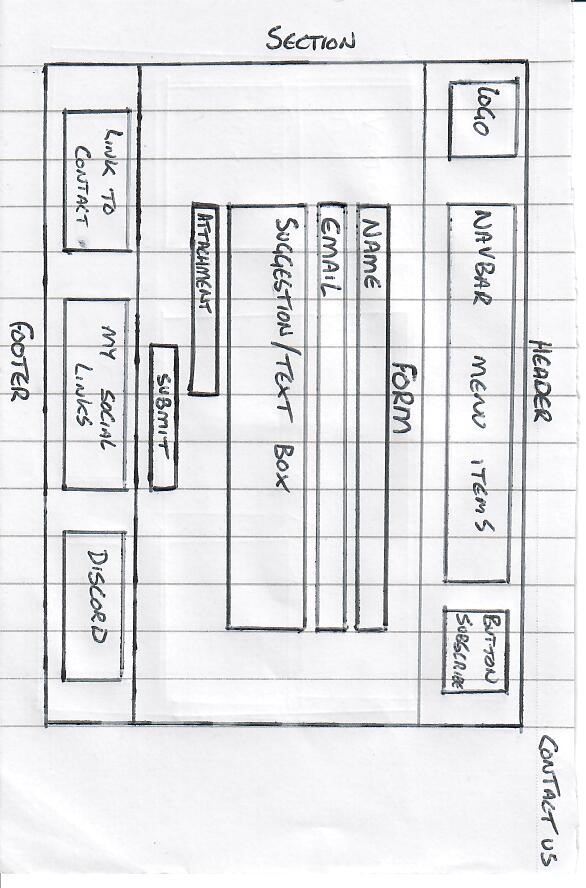 CONTACT US
HEADER
LOGO
NAVBAR MENU ITEMS
BUTTON
SUBSCRIBE
SECTION
FORM
NAME
EMAIL
SUGGESTION/TEXT BOX
ATTACHMENT
SUBMIT
LINK TO
CONTACT
MY SOCIAL
LINKS
DISCORD
FOOTER